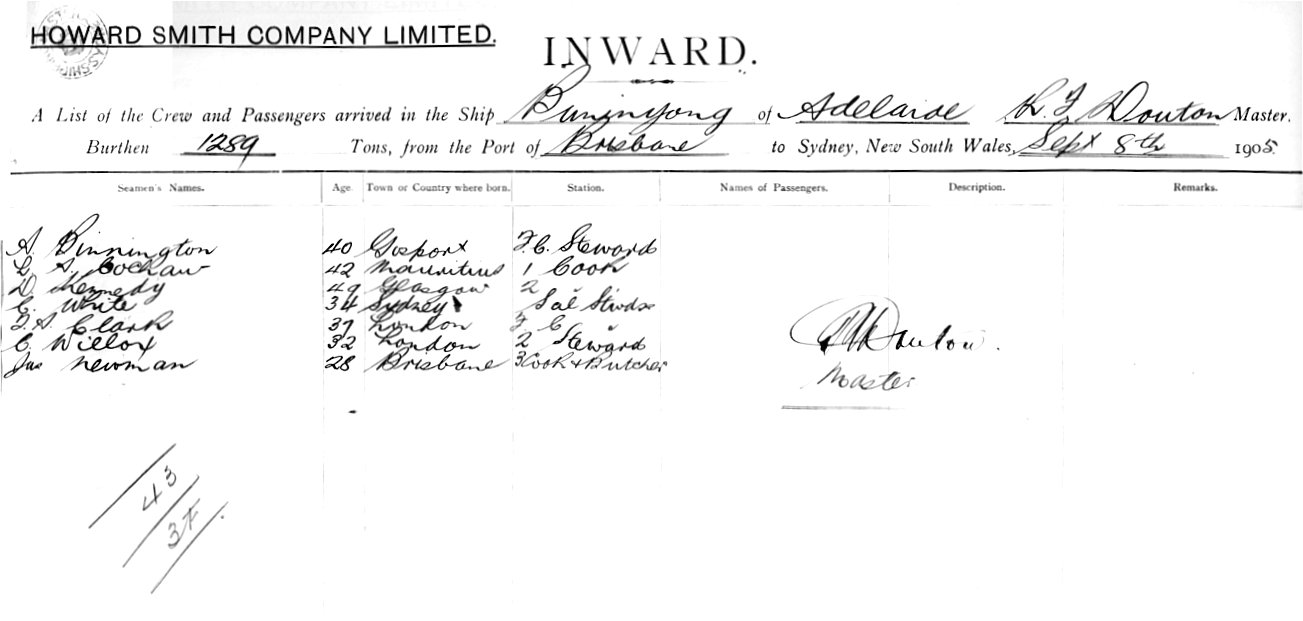 HOWARD SMITH COMPANY LIMITED.
INWARD.
A List of the Crew and Passengers arrived in the Ship Buninyong of Adelaide Master.
Burthen 1289 Tons, from the Port of Brisbane to Sydney, New South Wales, Sept 8th 1905.
Seamen's Names. Age Town or Country where born. Station. Names of Passengers. Description. Remarks.
A. Binnington 40 Gosport F.C. Steward
42 Mauritius 1 Cook
D. Kennedy 49 Glasgow 2 "
C. White 34 Sydney
Clark 37 London F C "
C. Willox 32 London 2 Steward
Jas Newman 28 Brisbane 3 Cook & Butcher
Master
43